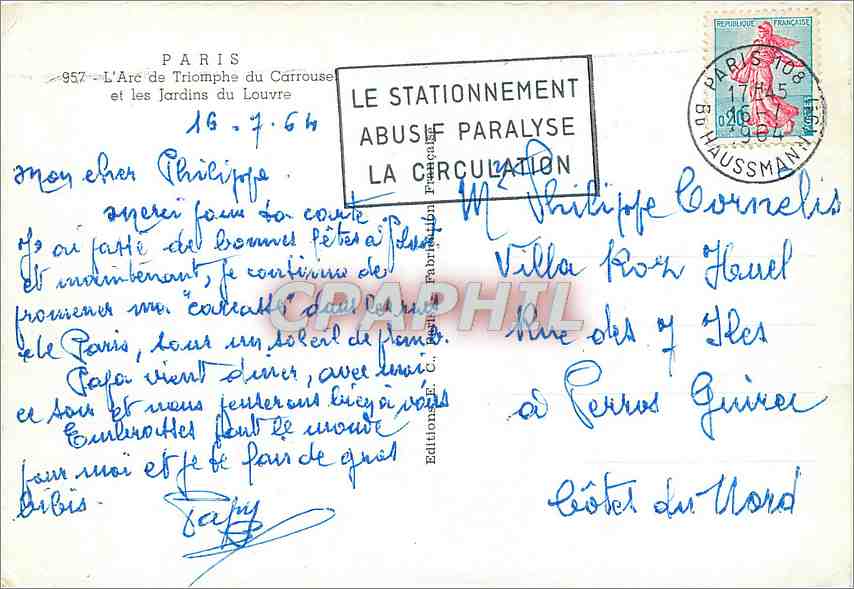 PARIS
957 - L'Arc de Triomphe du Carrousel
et les Jardins du Louvre
16-7-64
Mon cher Philippe.
Merci pour ta carte
J'ai passé de bonnes fêtes à
et maintenant, je continue de
promener ma "carcasse" dans les rues
de Paris, sous un soleil de plomb.
Papa vient diner, avec moi
ce soir et nous penserons bien à vous
Embrasses tout le monde
pour moi et je te fais de gros
bibis.
Papy
LE STATIONNEMENT
ABUSIF PARALYSE
LA CIRCULATION
REPUBLIQUE FRANÇAISE
0,20
PARIS 108
17H45
16-7
1964
Bd HAUSSMANN
Mr Philippe Cornelis
Villa Roz Hauel
Rue des 7 Iles
à Perros Guirec
Côtes du Nord
Editions E. C., Paris - Fabrication Française
CPAPHIL